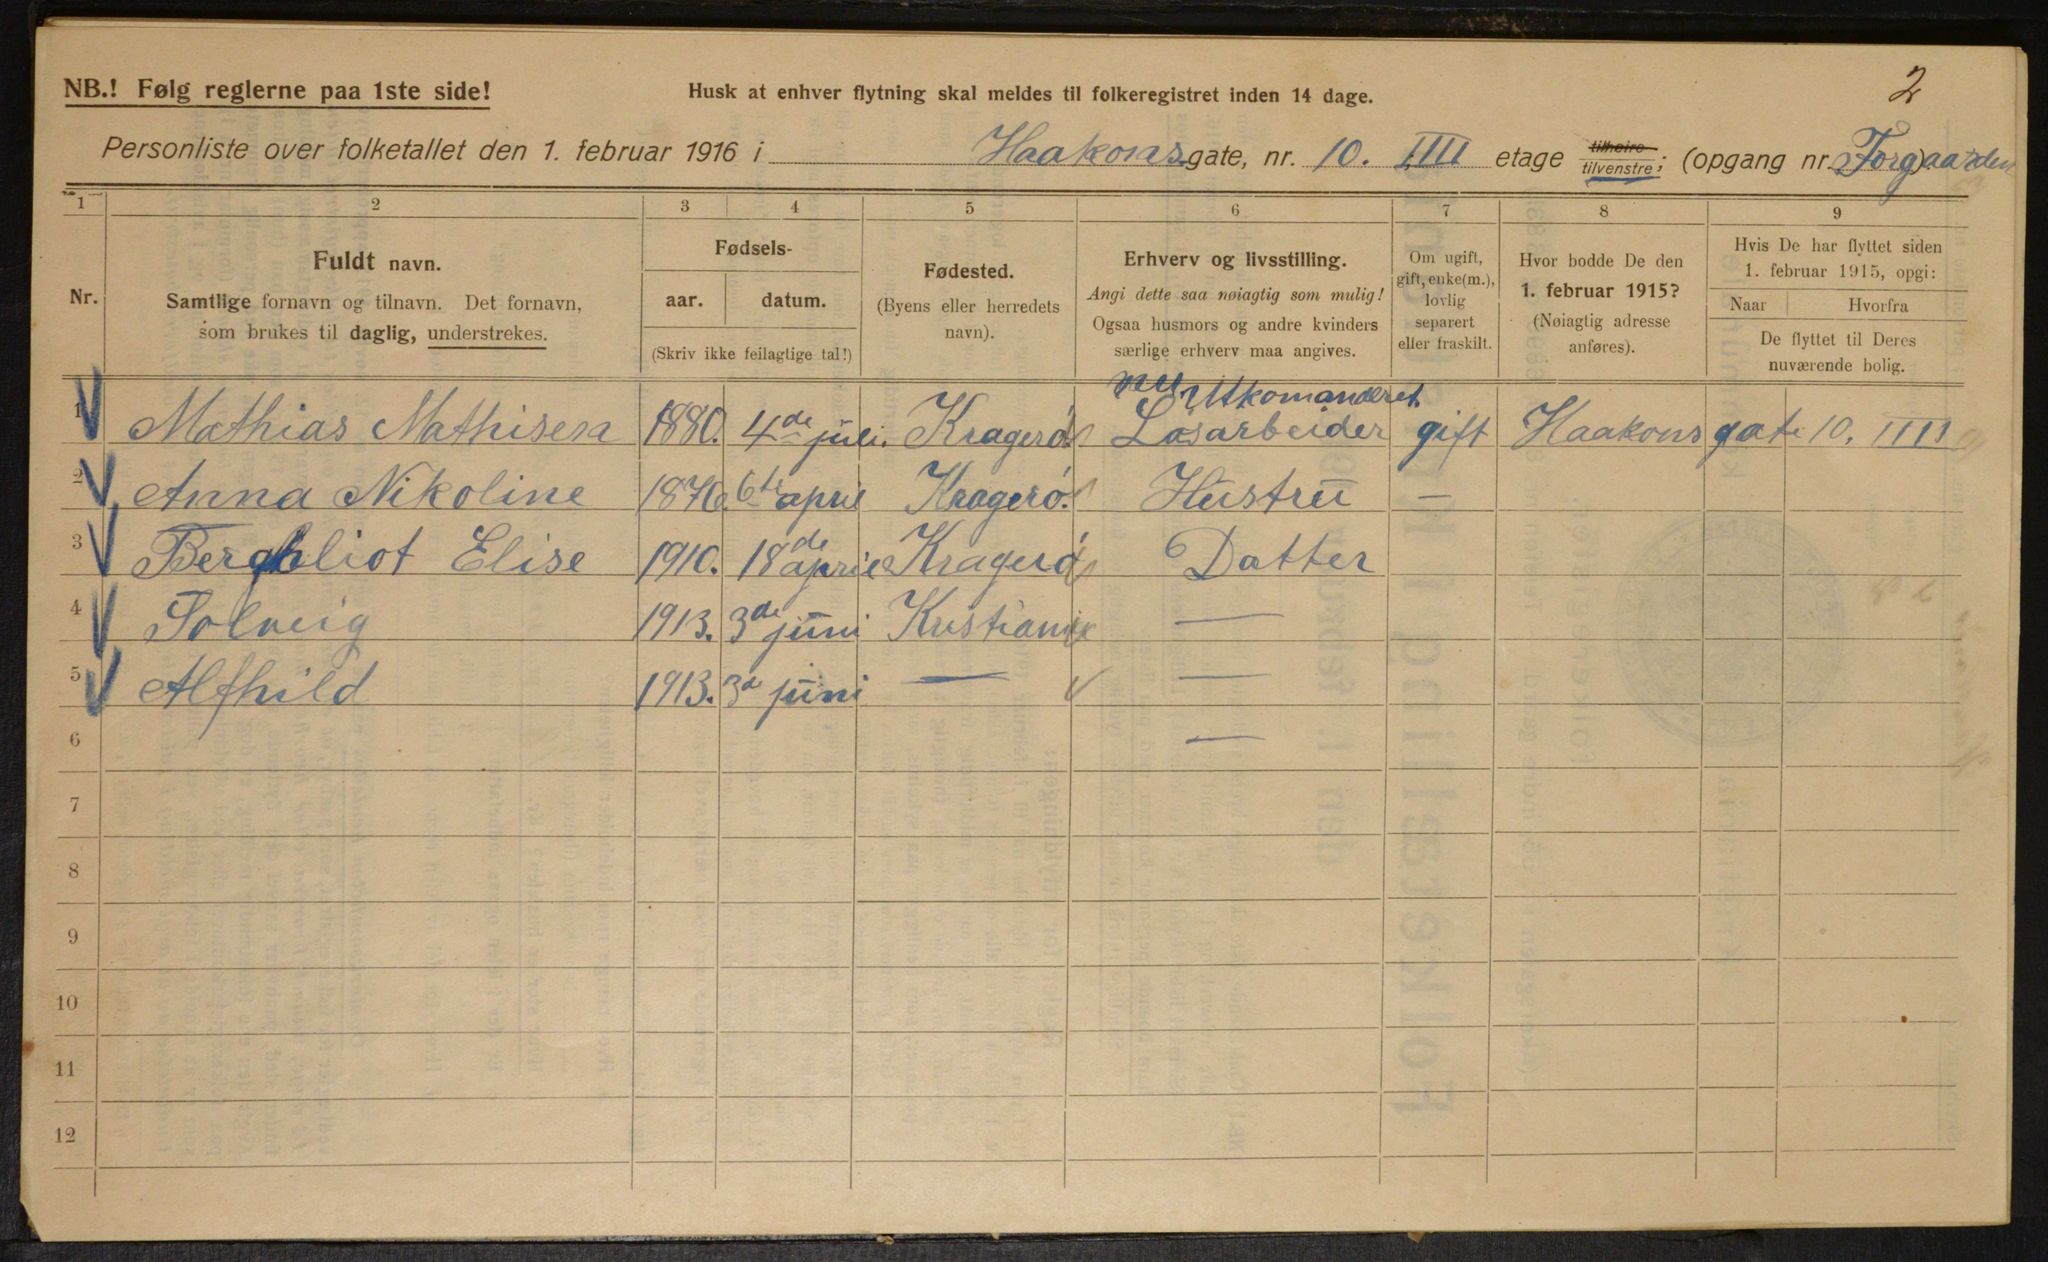 2
NB.! Følg reglerne paa 1ste side! Husk at enhver flytning skal meldes til folkeregistret inden 14 dage.
Personliste over folketallet den 1. februar 1916 i Haakonsgate, nr. 10. IIII etage tilhøire tilvenstre; (opgang nr. Forgaarden)
1 2 3 4 5 6 7 8 9
Nr.
Fuldt navn.
Samtlige fornavn og tilnavn. Det fornavn,
som brukes til daglig, understrekes.
Fødsels-
aar. datum.
(Skriv ikke feilagtige tal!)
Fødested.
(Byens eller herredets
navn).
Erhverv og livsstilling.
Angi dette saa nøiagtig som mulig!
Ogsaa husmors og andre kvinders
særlige erhverv maa angives.
Om ugift,
gift, enke(m.),
lovlig
separert
eller fraskilt.
Hvor bodde De den
1. februar 1915?
(Nøiagtig adresse
anføres).
Hvis De har flyttet siden
1. februar 1915, opgi:
Naar Hvorfra
De flyttet til Deres
nuværende bolig.
nu Utkomanderet
1 Mathias Mathisen 1880. 4de juli. Kragerø Løsarbeider gift Haakonsgate 10. IIII
2 Anna Nikoline 1876. 6te april Kragerø. Hustru —
3 Bergliot Elise 1910. 18de april Kragerø Datter
4 Solveig 1913. 3de juni Kristiania —
5 Alfhild 1913. 3d juni — —
6 —
7
8
9
10
11
12